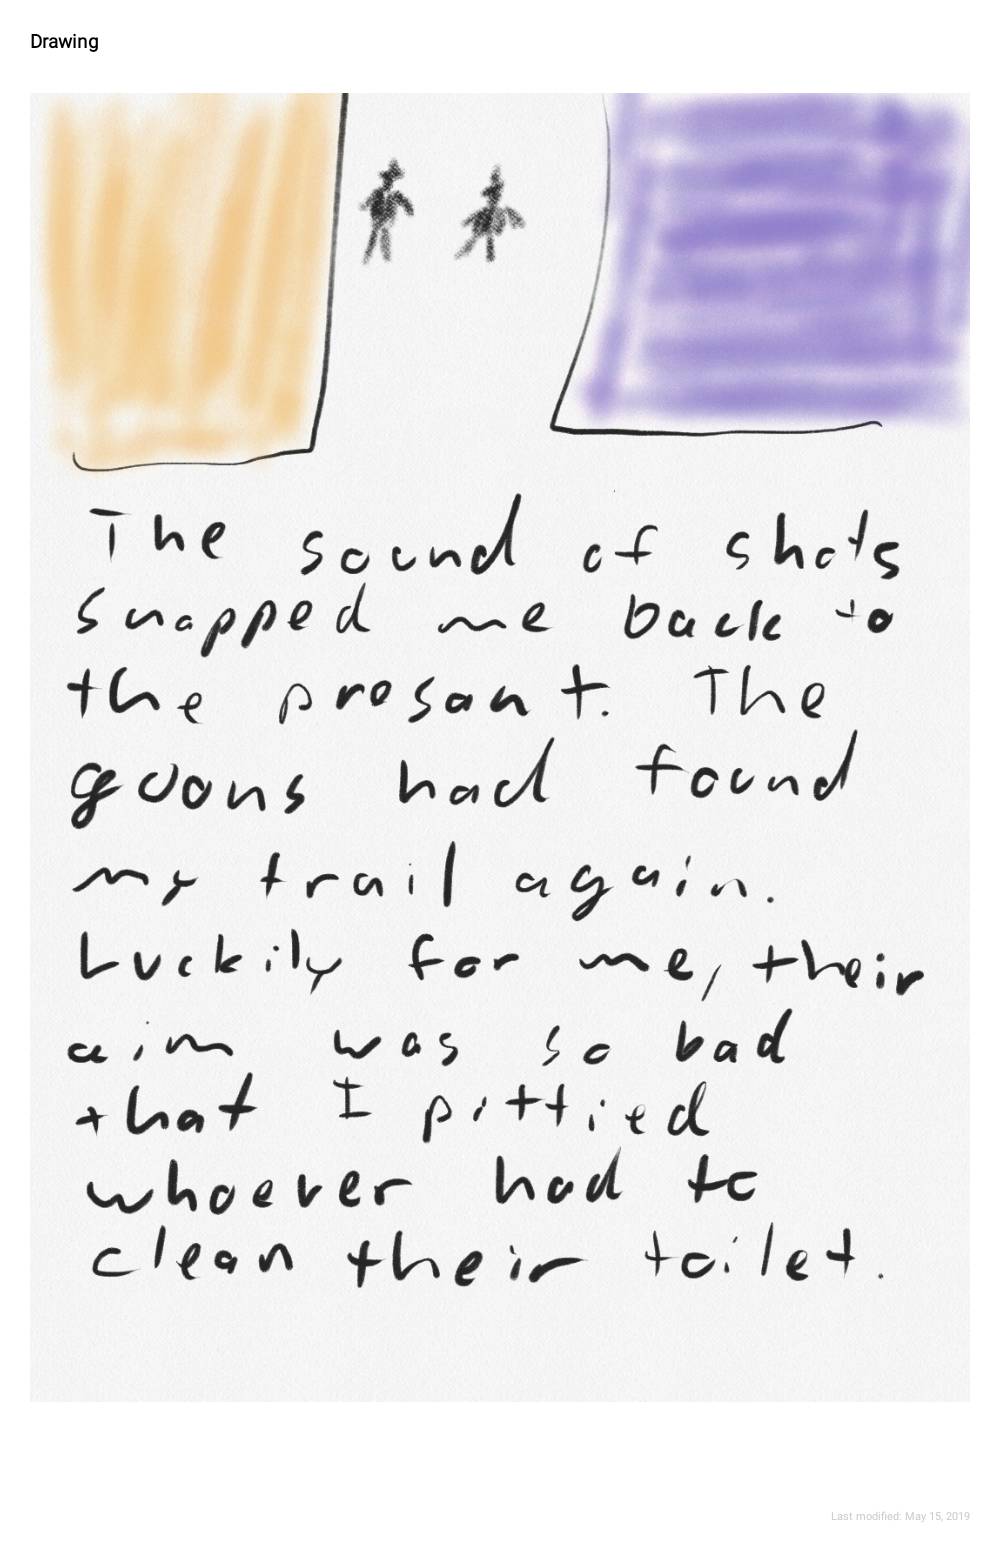 Drawing
The sound of shots
snapped me back to
the prosant. The
goons had found
my trail again.
Luckily for me, their
aim was so bad
that I pittied
whoever had to
clean their toilet.
Last modified: May 15, 2019